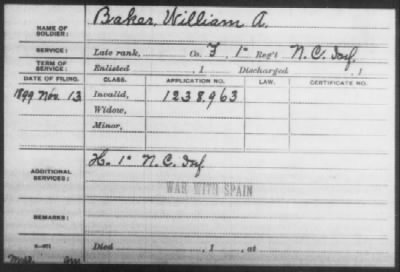 NAME OF SOLDIER: Baker, William A.
SERVICE: Late rank, Co. F, 1st Reg't N.C. Inf.
TERM OF SERVICE: Enlisted , 1 Discharged , 1
DATE OF FILING. CLASS. APPLICATION NO. LAW. CERTIFICATE NO.
1899 Nov. 13 Invalid, 1238.963
Widow,
Minor,
ADDITIONAL SERVICES: H. 1st N.C. Inf
WAR WITH SPAIN
REMARKS:
Died , 1 , at